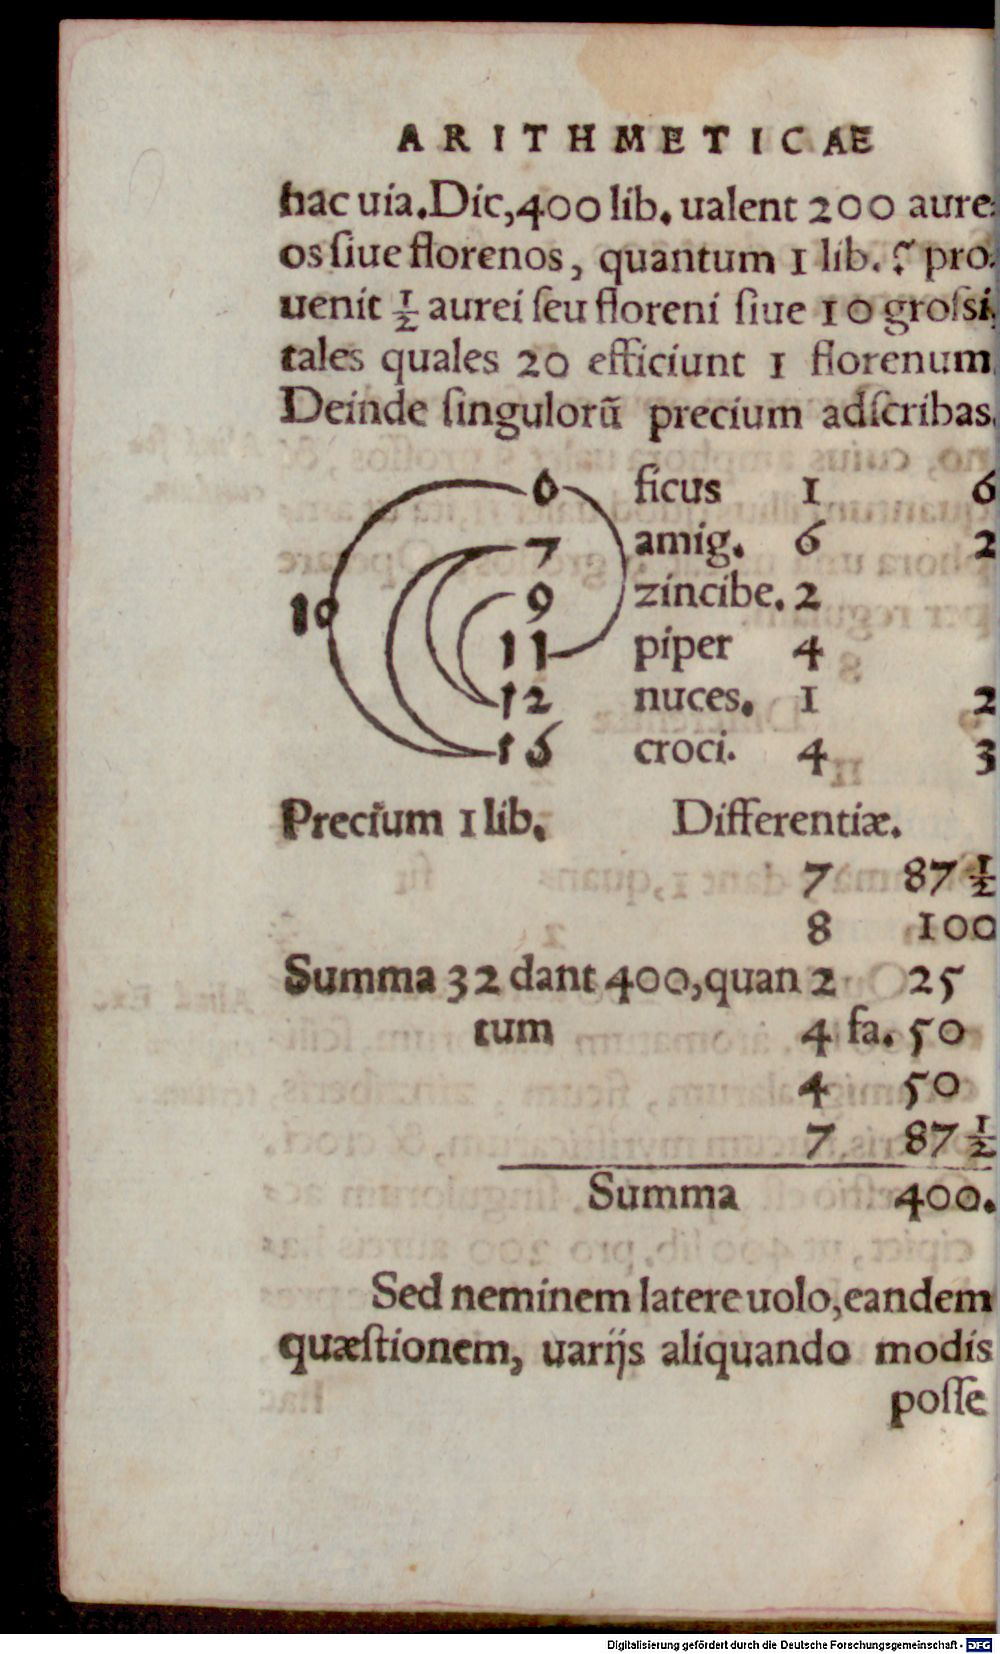 ARITHMETICAE
hac uia. Dic, 400 lib. ualent 200 aure
os ſiue florenos, quantum 1 lib. ? pro
uenit 1/2 aurei ſeu floreni ſiue 10 groſsi
tales quales 20 efficiunt 1 florenum
Deinde ſingulorũ precium adſcribas.
6 ficus 1 6
7 amig. 6 2
9 zincibe. 2
10
11 piper 4
12 nuces. 1 2
16 croci. 4 3
Precium 1 lib. Differentiæ.
7 87 1/2
8 100
Summa 32 dant 400, quan 2 25
tum 4 fa. 50
4 50
7 87 1/2
Summa 400.
Sed neminem latere uolo, eandem
quæſtionem, uarijs aliquando modis
poſſe
Digitalisierung gefördert durch die Deutsche Forschungsgemeinschaft - DFG